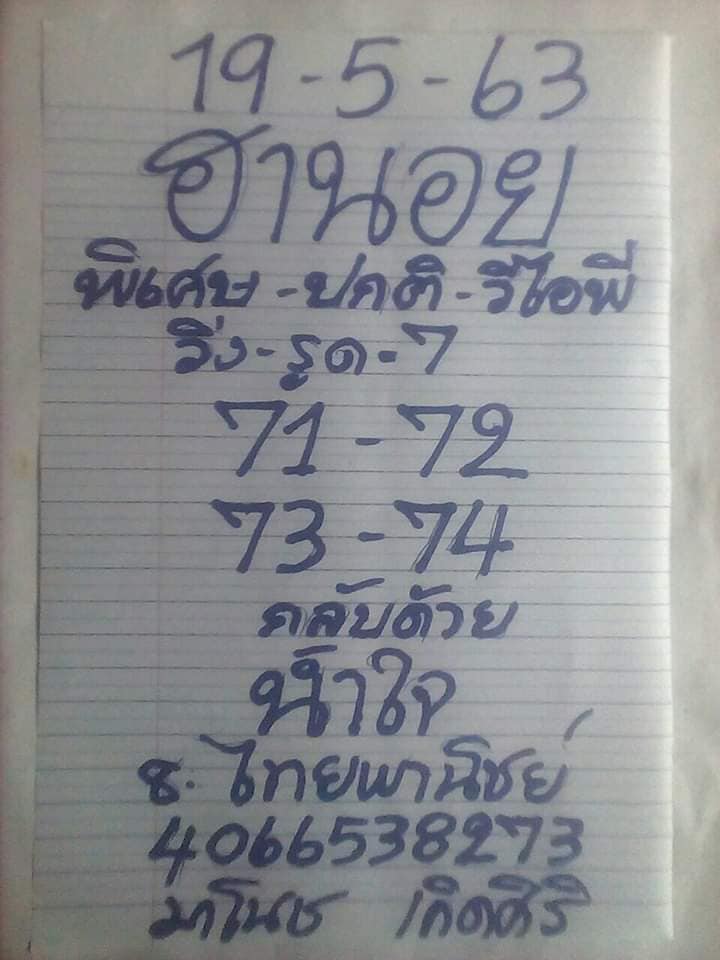 19-5-63
ฮานอย
พิเศษ-ปกติ-วีไอพี
วิ่ง-รูด-7
71-72
73-74
กลับด้วย
น้ำใจ
ธ.ไทยพานิชย์
4066538273
มาโนช เกิดศิริ